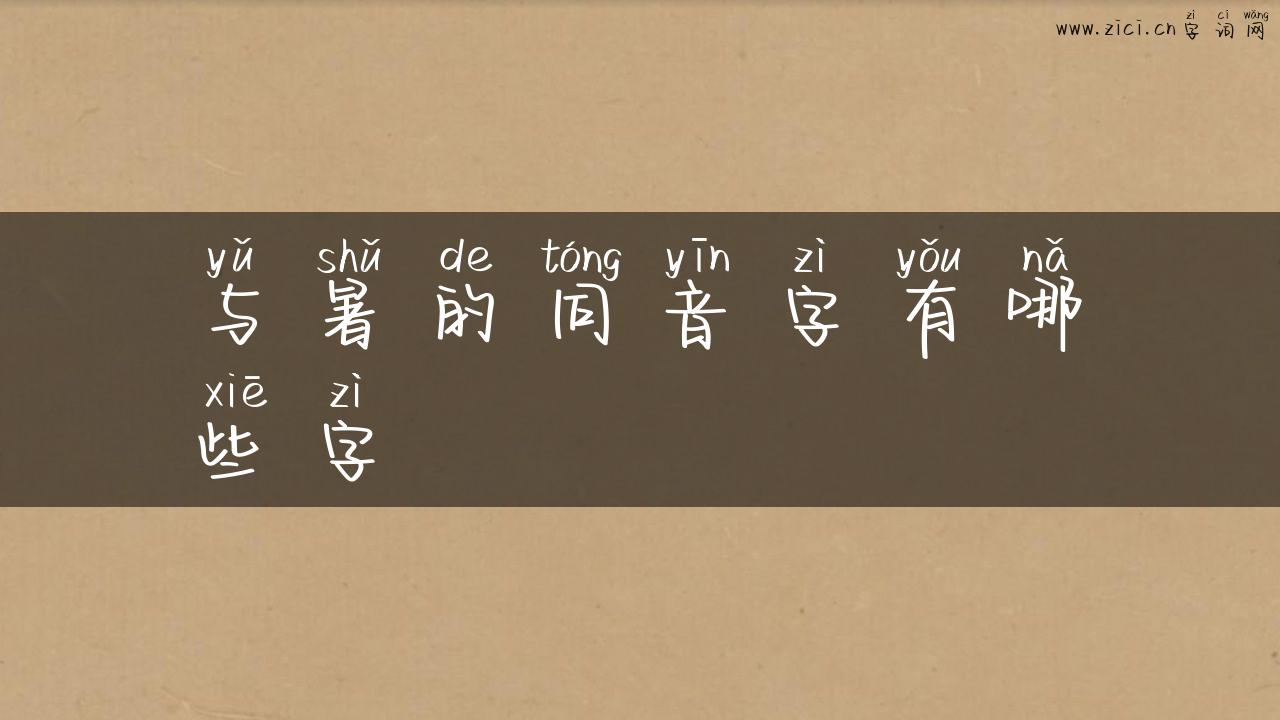 www.zici.cn zì cí wǎng
字词网
yǔ shǔ de tóng yīn zì yǒu nǎ
与暑的同音字有哪
xiē zì
些字